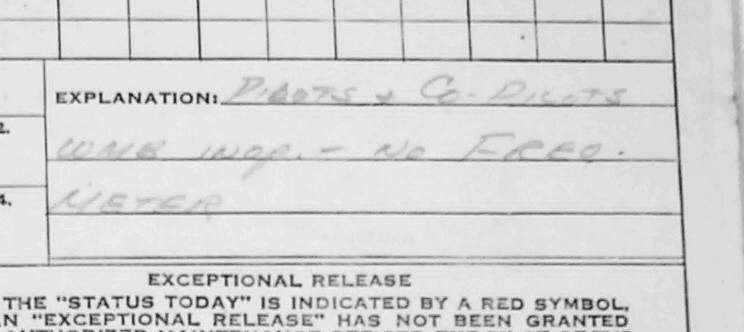 2.
4.
EXPLANATION: PILOTS & CO-PILOTS
INOP. - NO FREQ.
METER
EXCEPTIONAL RELEASE
THE "STATUS TODAY" IS INDICATED BY A RED SYMBOL,
AN "EXCEPTIONAL RELEASE" HAS NOT BEEN GRANTED